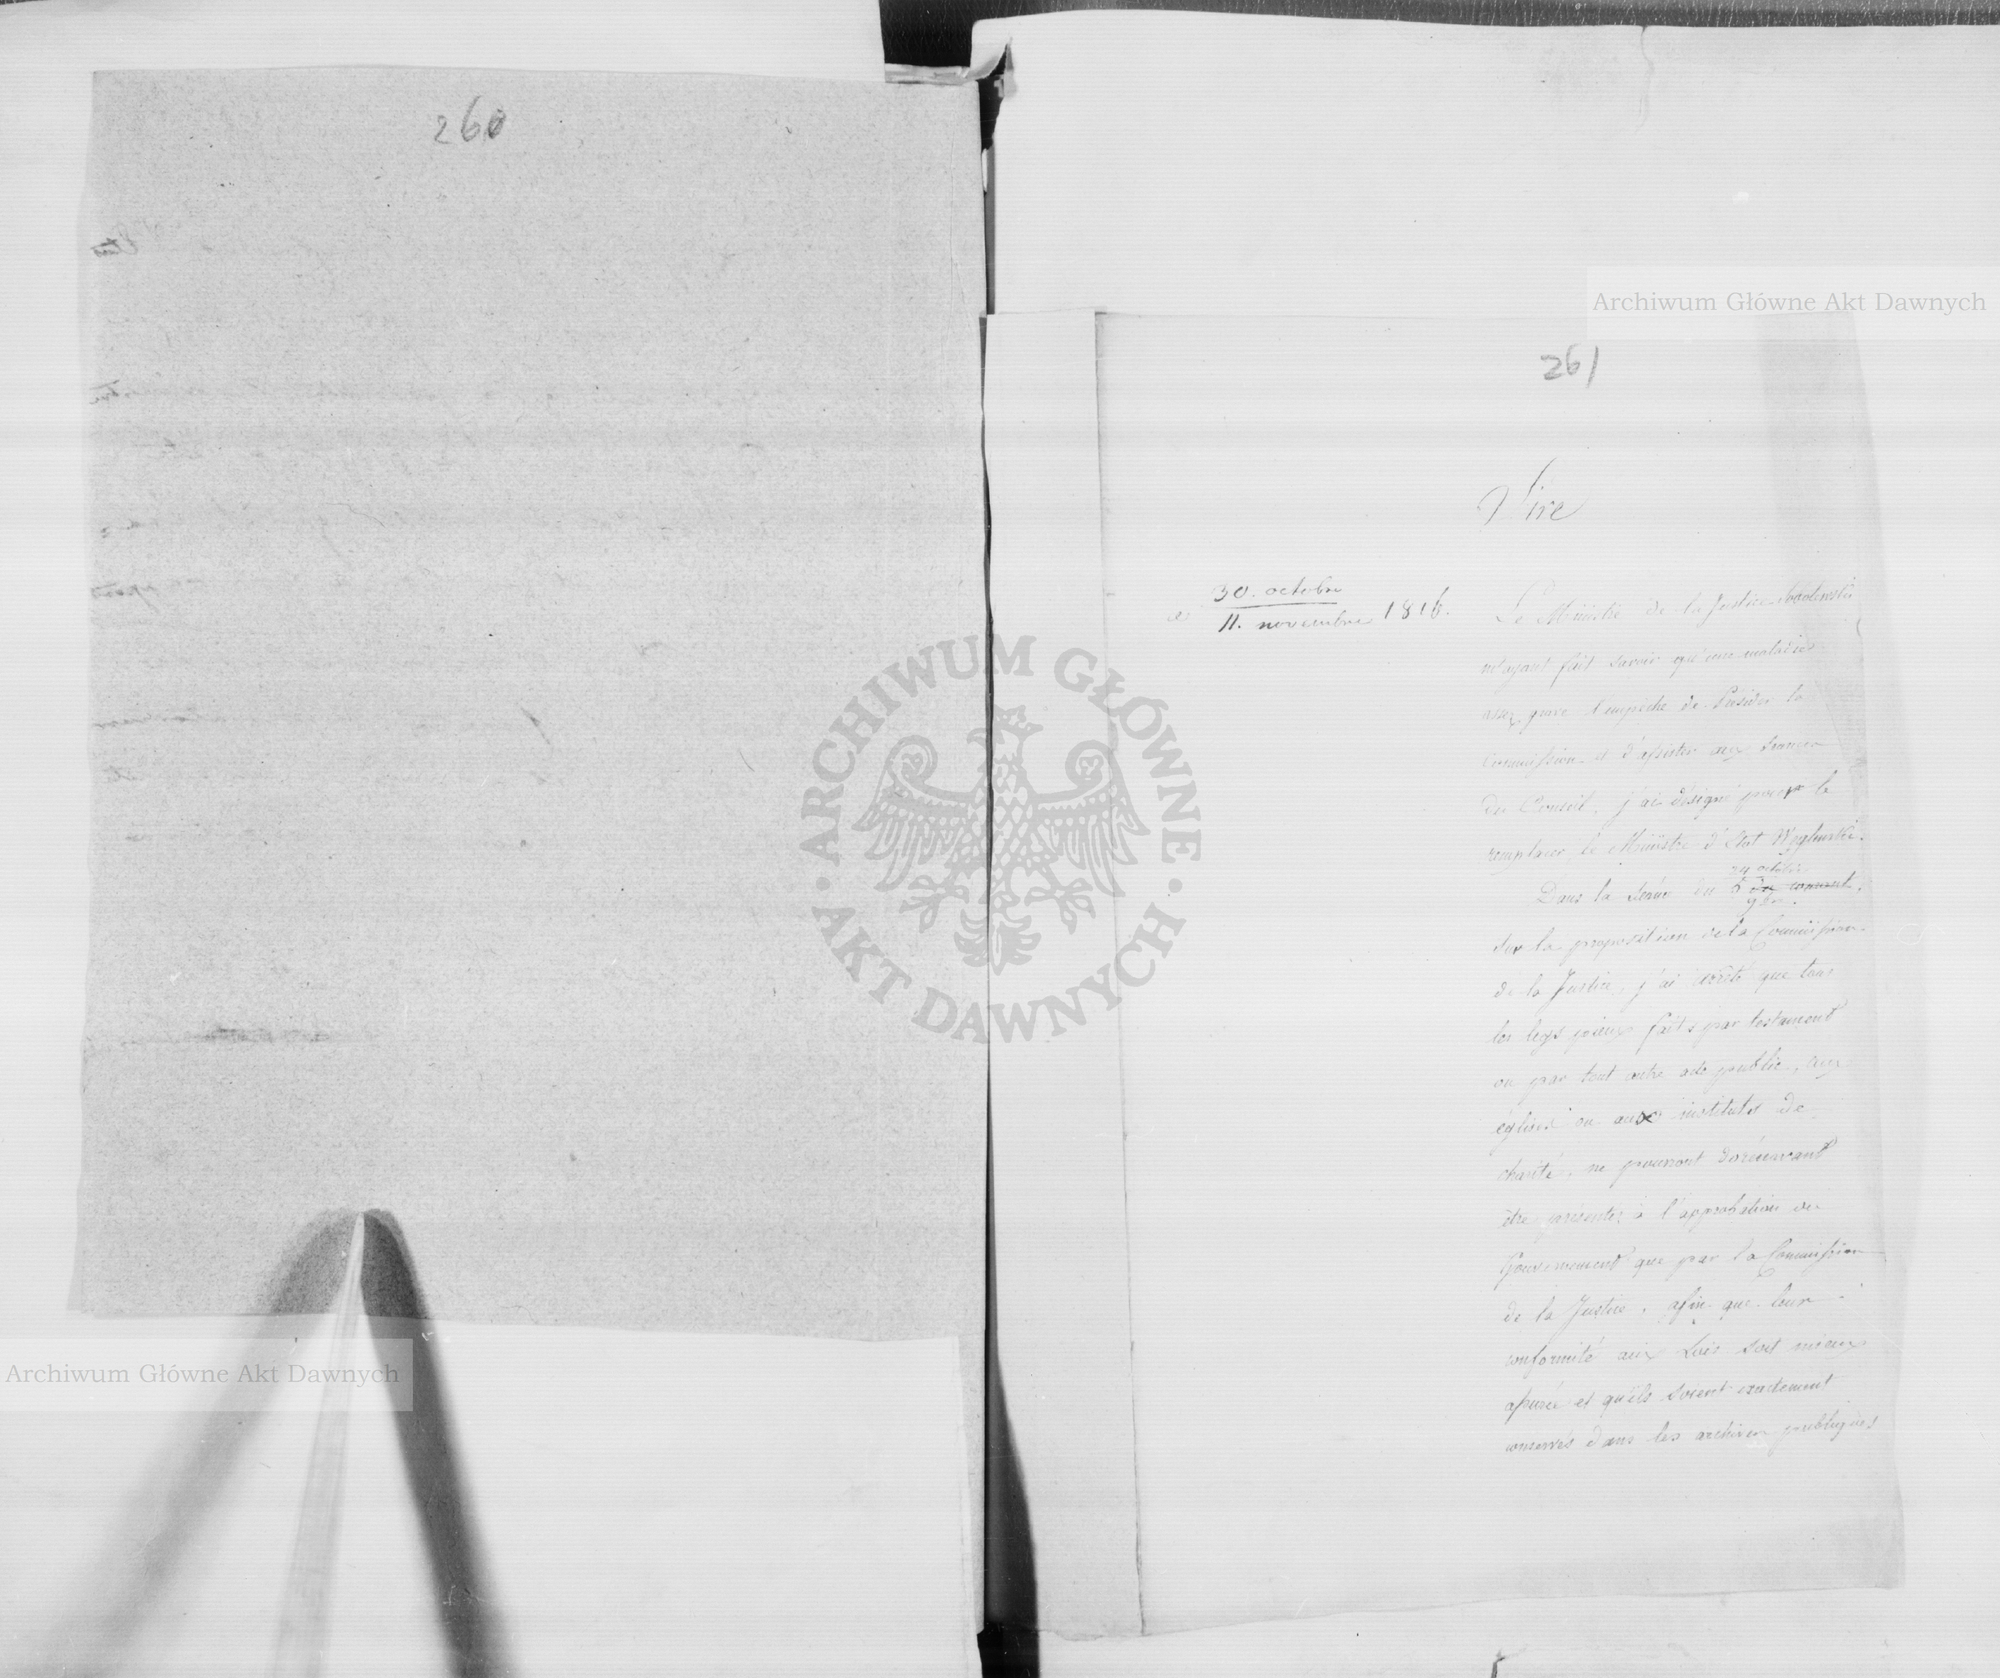 260
261
Archiwum Główne Akt Dawnych
Sire
30. octobre
ce 11. novembre 1816.
Le Ministre de la Justice Sobolewski
m'ayant fait savoir qu'une maladie
assez grave l'empêche de Présider la
Commission et d'assister aux séances
du Conseil, j'ai désigné pour le
remplacer le Ministre d'Etat Wyglinski.
24 octobre
Dans la séance du 5 du courant,
9br.
sur la proposition de la Commission
de la Justice, j'ai arrêté que tous
les legs pieux faits par testament
ou par tout autre acte public, aux
églises ou aux instituts de
charité, ne pourront dorénavant
être présentés à l'approbation du
Gouvernement que par la Commission
de la Justice, afin que leur
conformité aux Lois soit mieux
assurée et qu'ils soient exactement
conservés dans les archives publiques
ARCHIWUM GŁÓWNE
AKT DAWNYCH
Archiwum Główne Akt Dawnych